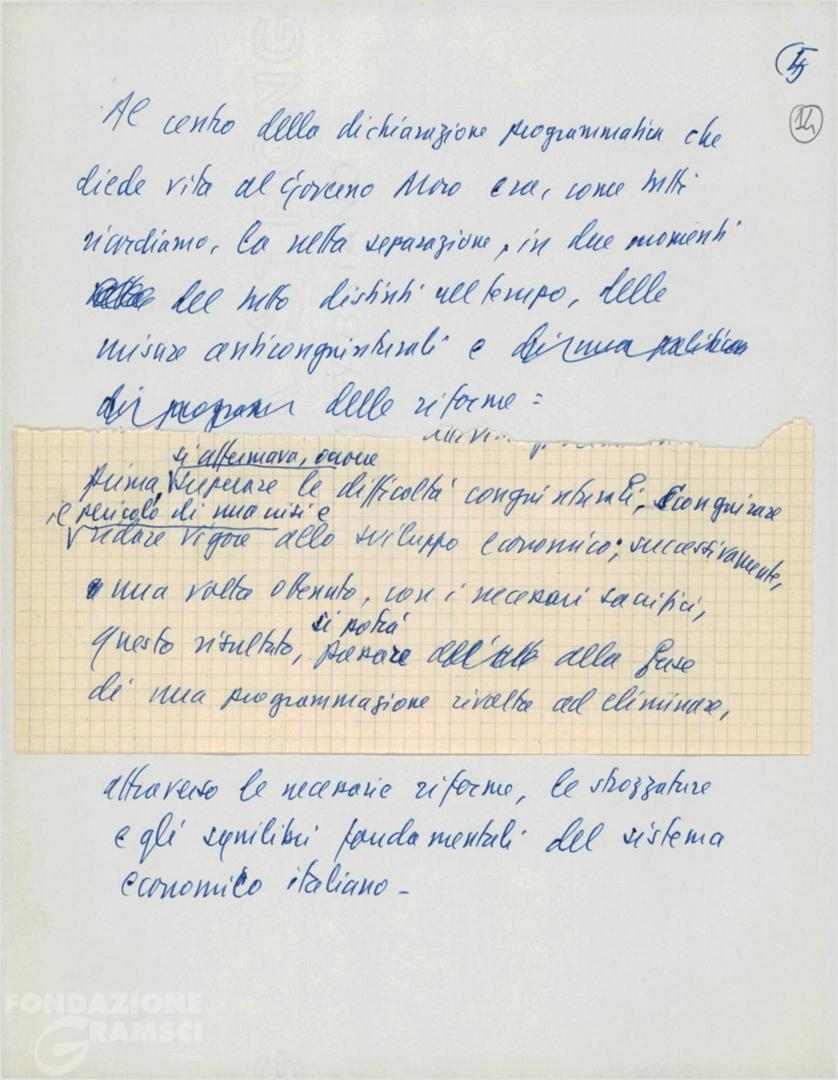 15
14
Al centro della dichiarazione programmatica che
diede vita al Governo Moro era, come tutti
ricordiamo, la netta separazione, in due momenti
del tutto distinti nel tempo, delle
misure anticongiunturali e di una politica
di program delle riforme:
si affermava, occorre
prima, superare le difficoltà congiunturali, scongiurare
il pericolo di una crisi e
ridare vigore allo sviluppo economico; successivamente,
una volta ottenuto, con i necessari sacrifici,
si potrà
questo risultato, passare alla fase
di una programmazione rivolta ad eliminare,
attraverso le necessarie riforme, le strozzature
e gli squilibri fondamentali del sistema
economico italiano -
FONDAZIONE
GRAMSCI